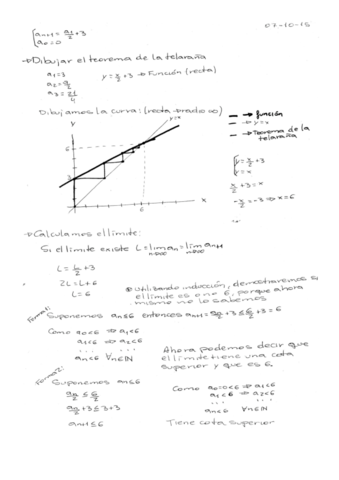 07-10-15
{an+1 = an/2 + 3
a0 = 0
→ Dibujar el teorema de la telaraña
a1 = 3
a2 = 9/2
a3 = 21/4
y = x/2 + 3 → Función (recta)
Dibujamos la curva: (recta → radio ∞)
y
y=x
→ función
→ y=x
→ Teorema de la telaraña
6
3
6
x
{y = x/2 + 3
y = x
x/2 + 3 = x
-x/2 = -3 ⇒ x = 6
→ Calculamos el límite:
Si el límite existe L = lim an = lim an+1
n→∞ n→∞
L = L/2 + 3
2L = L + 6
L = 6
* Utilizando inducción, demostraremos si
el límite es o no 6, porque ahora
mismo no lo sabemos
Forma 1:
Suponemos an ≤ 6 entonces an+1 = an/2 + 3 ≤ 6/2 + 3 = 6
Como a0 < 6 ⇒ a1 < 6
a1 < 6 ⇒ a2 < 6
... ...
an < 6 ∀n∈ℕ
Ahora podemos decir que
el límite tiene una cota
superior y que es 6.
Forma 2:
Suponemos an ≤ 6
an/2 ≤ 6/2
an/2 + 3 ≤ 3 + 3
an+1 ≤ 6
Como a0 = 0 < 6 ⇒ a1 < 6
a1 < 6 ⇒ a2 < 6
... ...
an < 6 ∀n∈ℕ
Tiene cota superior